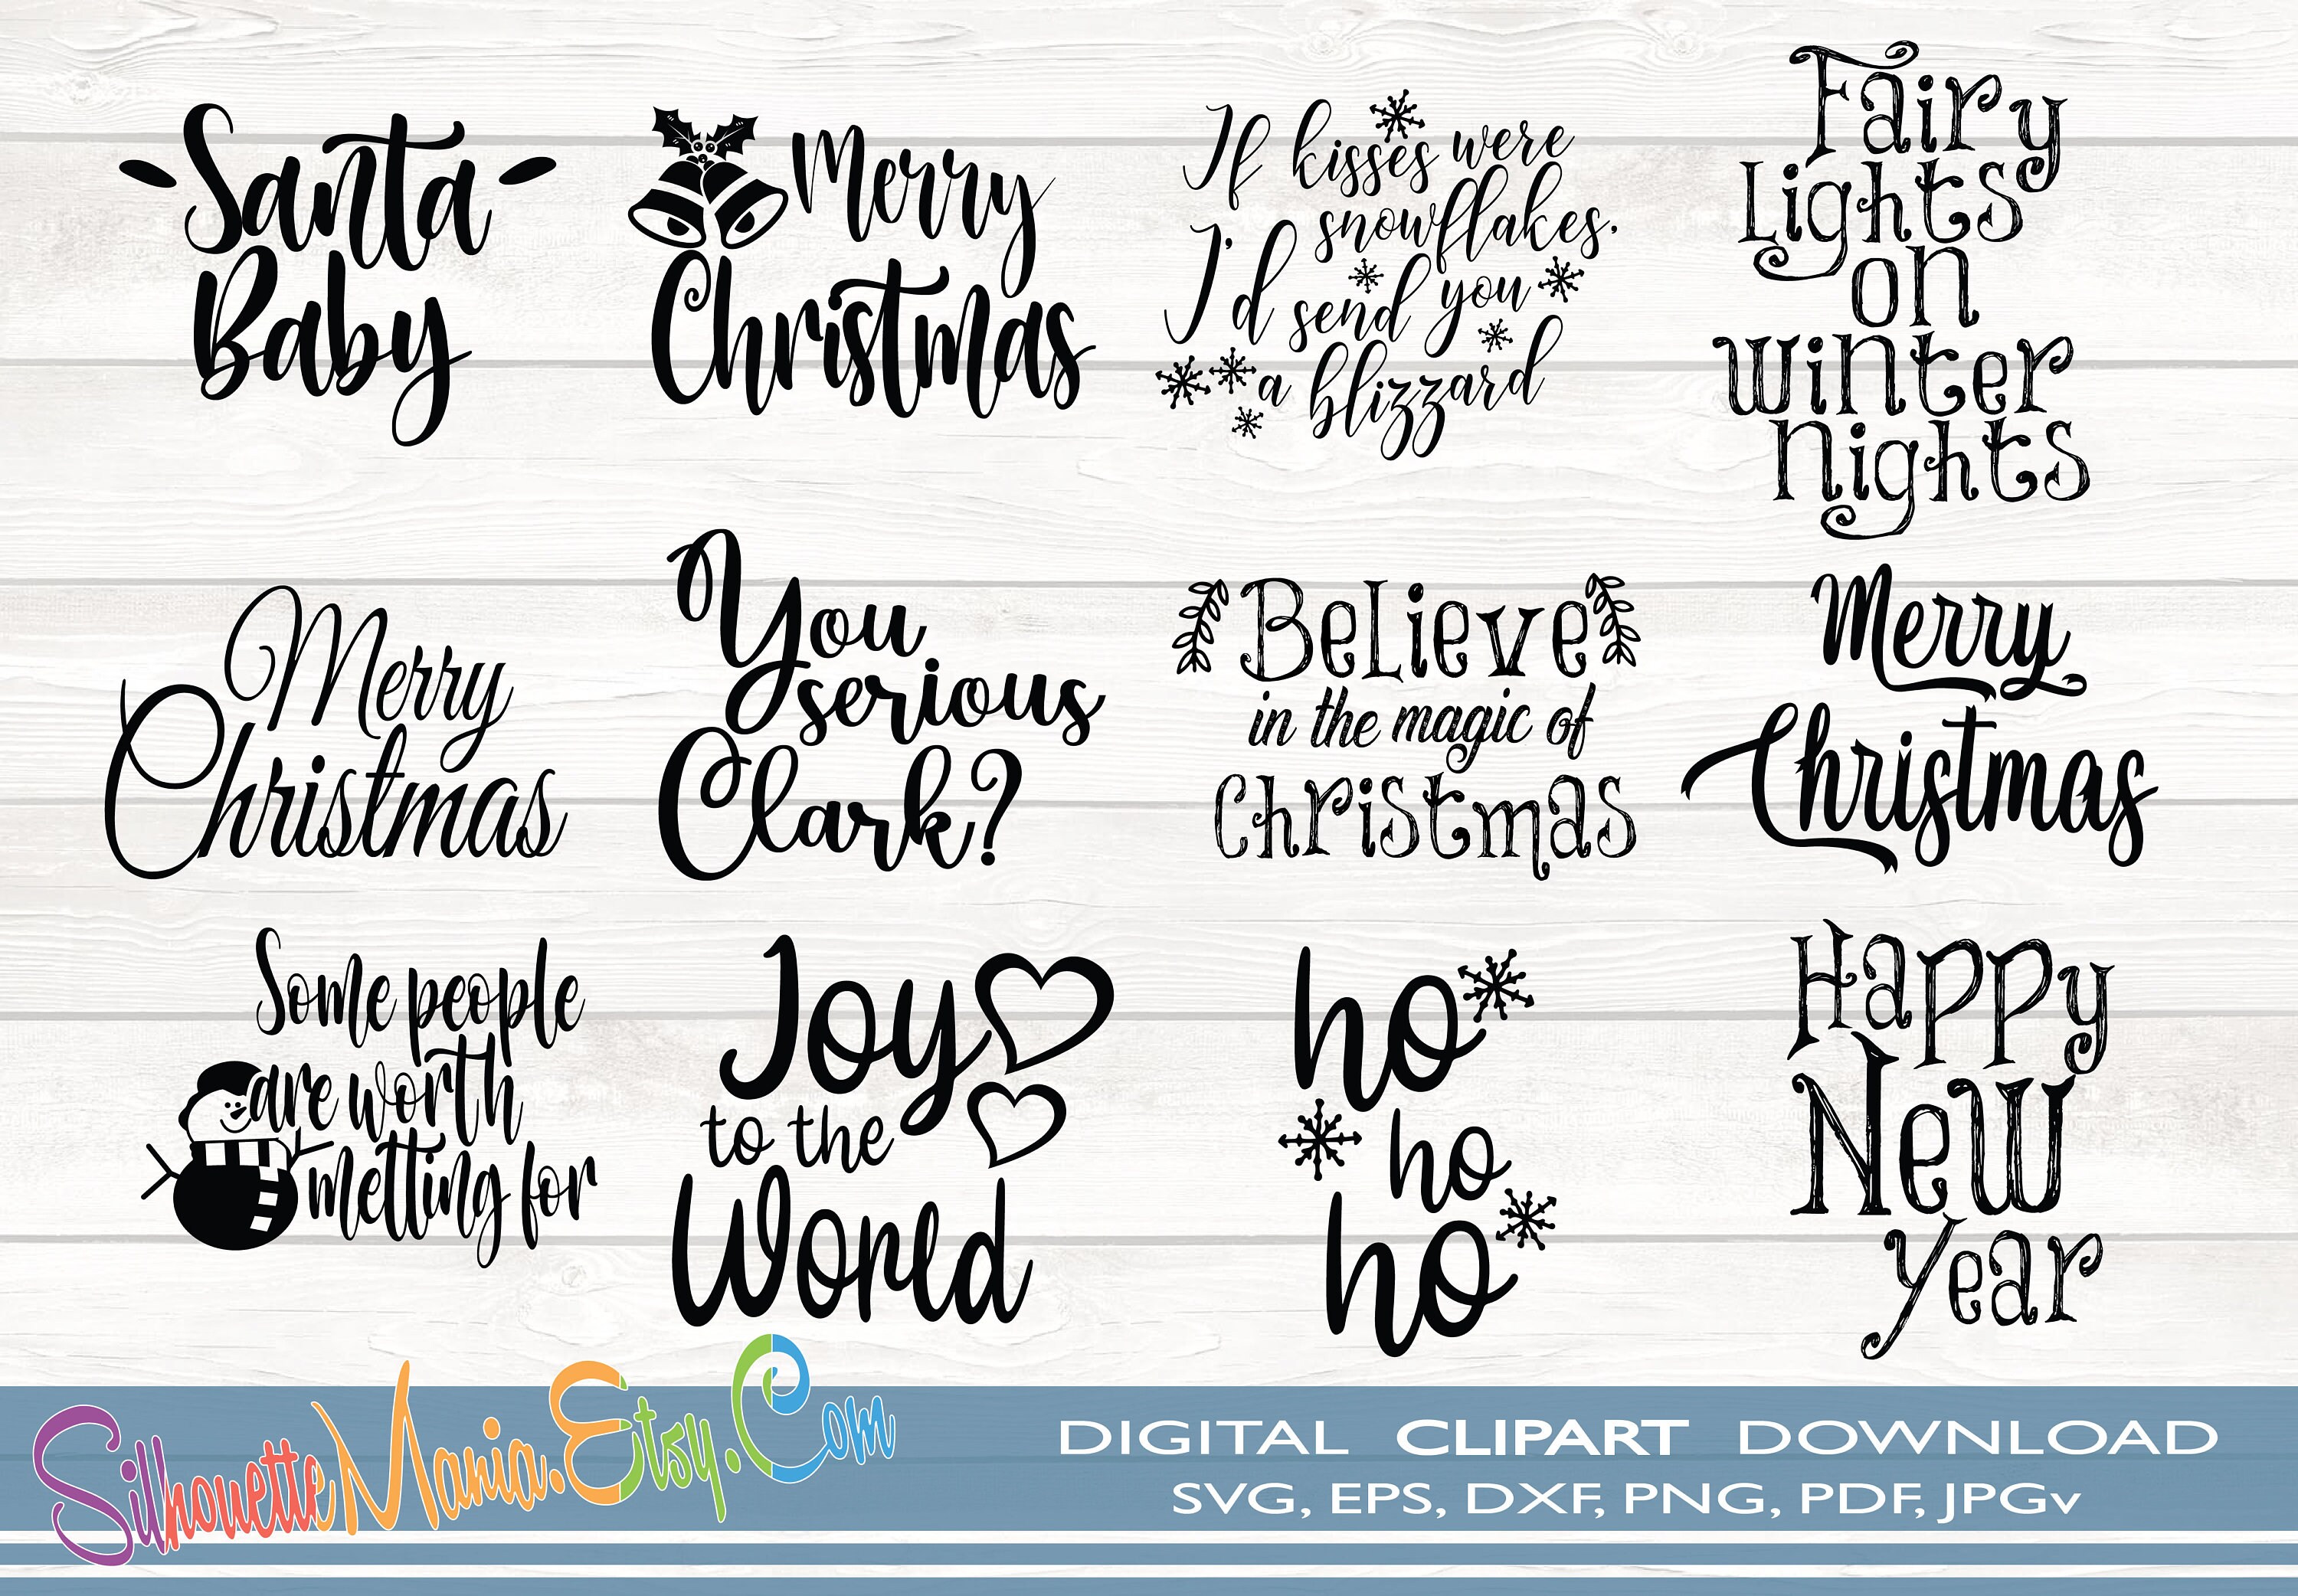 Santa
Baby
Merry
Christmas
If kisses were
snowflakes.
I'd send you
a blizzard
Fairy
Lights
on
winter
Nights
Merry
Christmas
You
serious
Clark?
Believe
in the magic of
Christmas
Merry
Christmas
Some people
are worth
metting for
Joy
to the
World
ho
ho
ho
Happy
New
Year
SilhouetteMania.Etsy.Com
DIGITAL CLIPART DOWNLOAD
SVG, EPS, DXF, PNG, PDF, JPGv